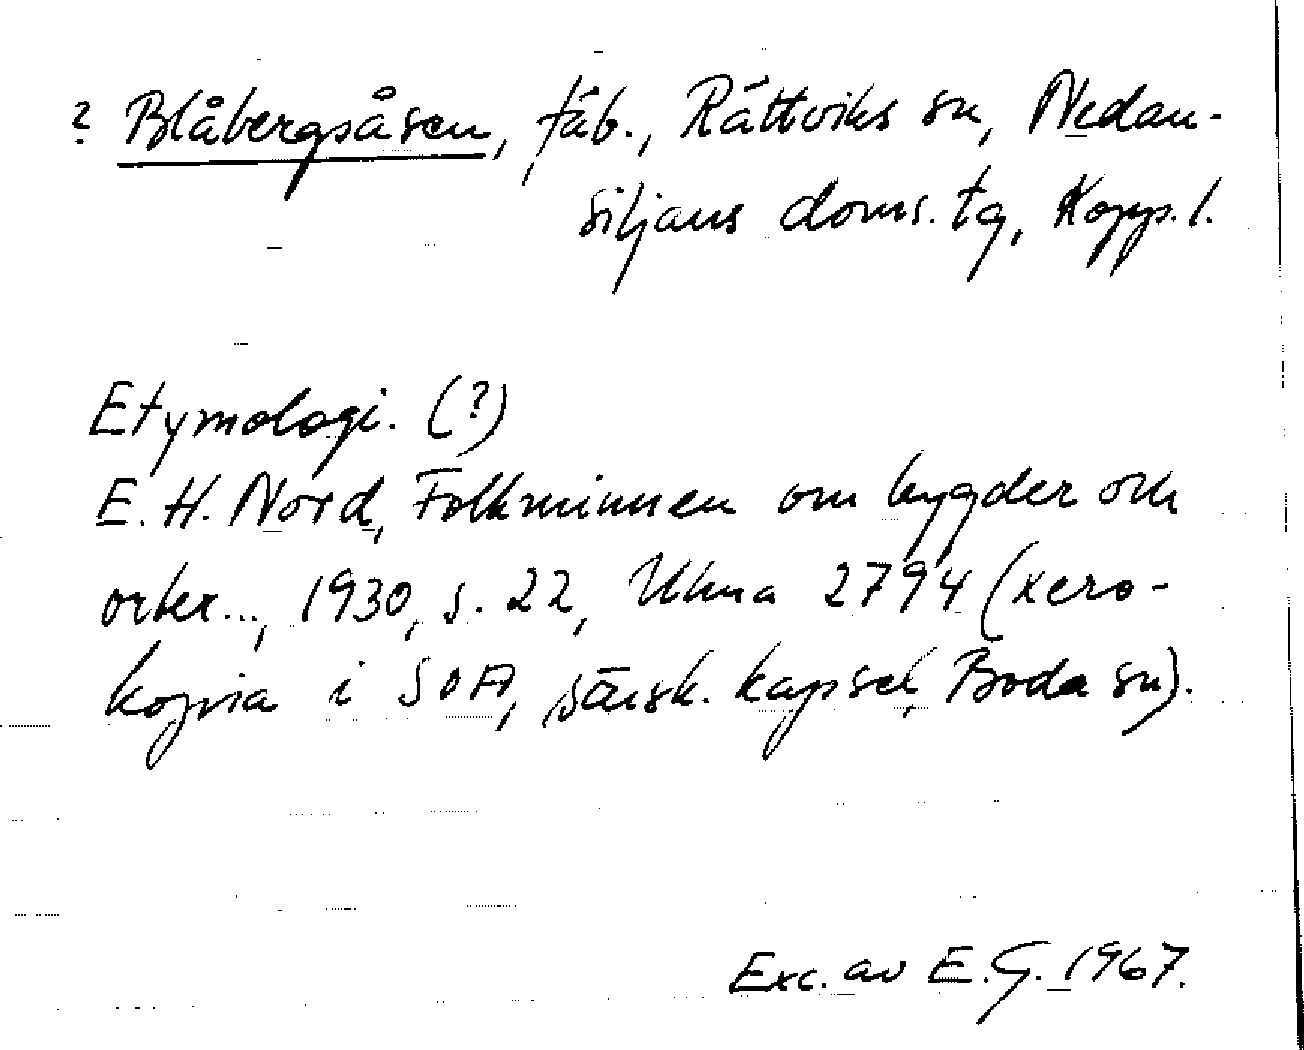 ? Blåbergsåsen, fäb., Rättviks sn, Nedan-
siljans doms. tg, Kopp. l.
Etymologi. (?)
E. H. Nord, Folkminnen om bygder och
orter..., 1930, s. 22, Ulma 2794 (xero-
kopia i SOA, särsk. kapsel, Boda sn).
Exc. av E.G. 1967.